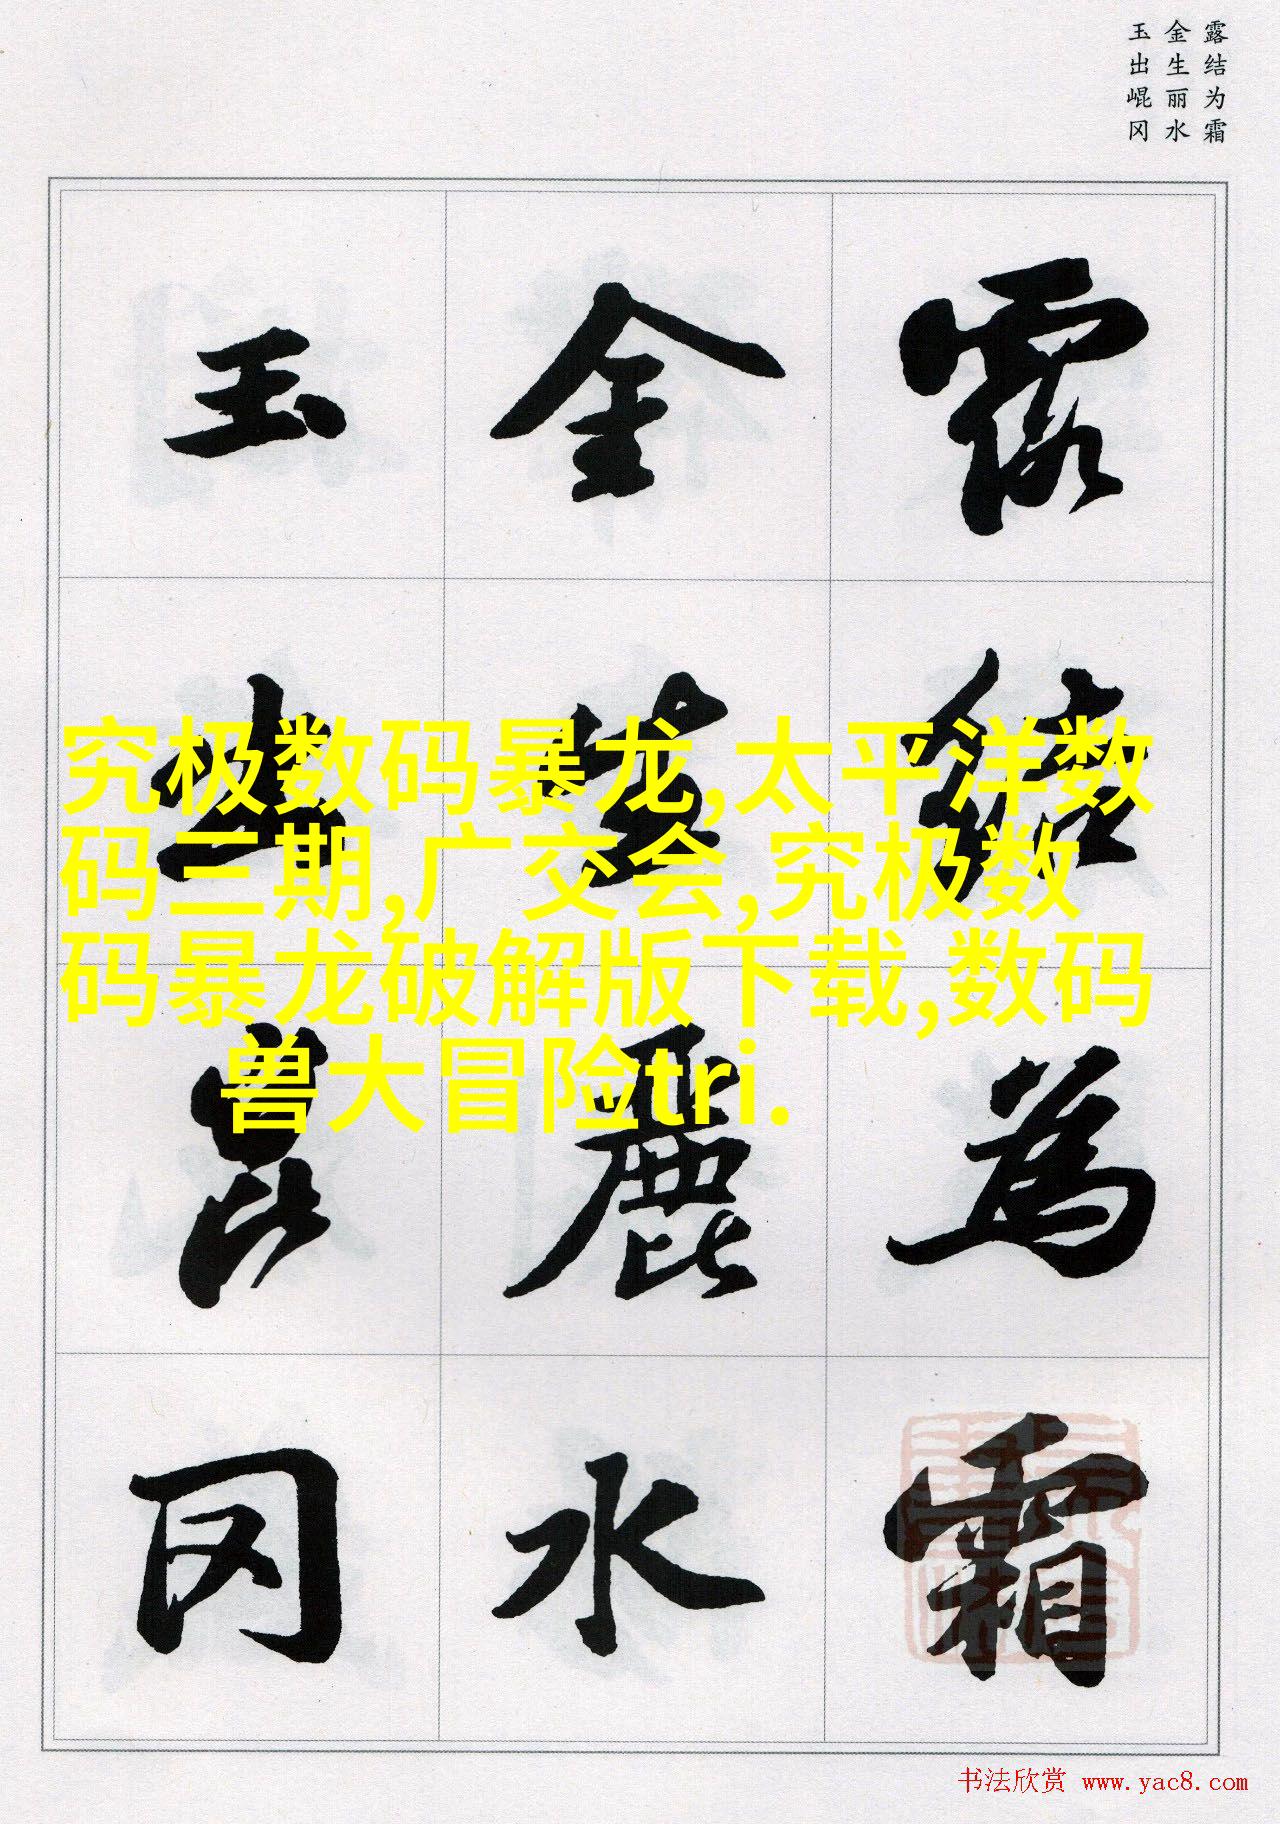 露结为霜
金生丽水
玉出崐冈
露結為霜
金生麗水
玉出崑冈
究极数码暴龙,太平洋数
码三期,广交会,究极数
码暴龙破解版下载,数码
兽大冒险tri.
书法欣赏 www.yac8.com